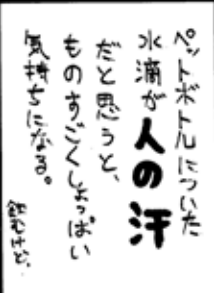 ペットボトルについた
水滴が人の汗
だと思うと、
ものすごくしょっぱい
気持ちになる。
飲むけど、